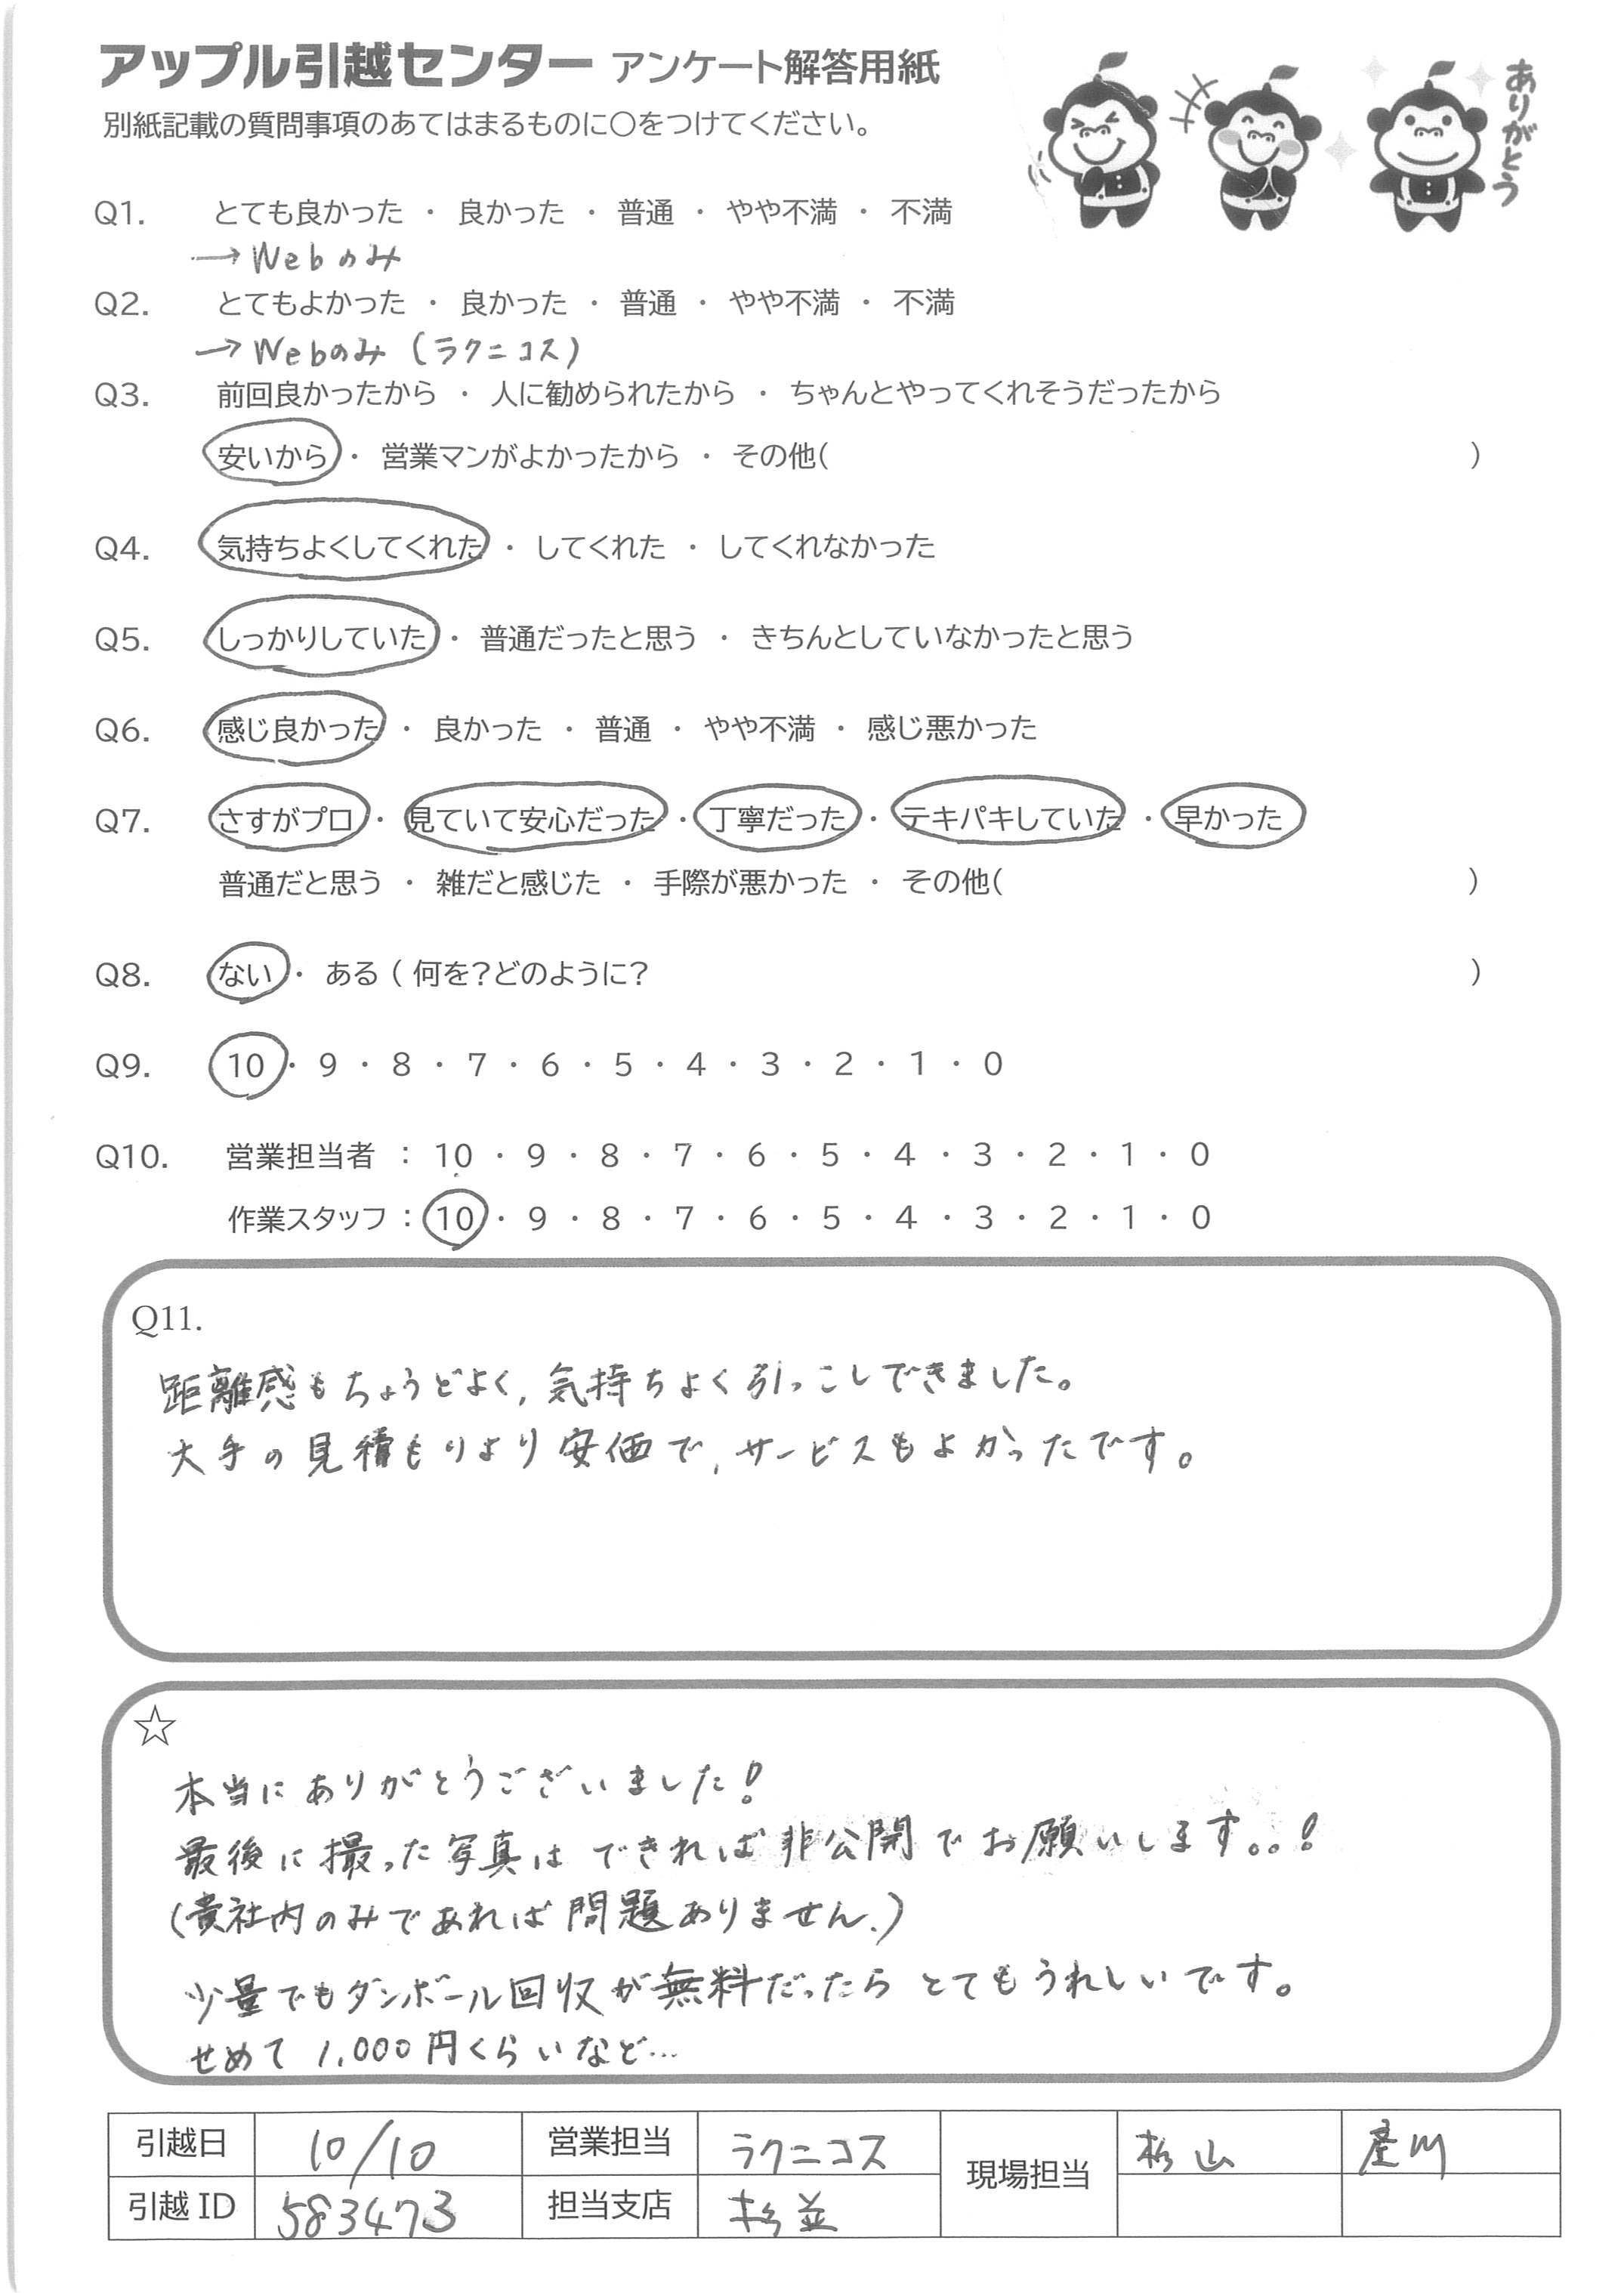 アップル引越センター アンケート解答用紙
別紙記載の質問事項のあてはまるものに○をつけてください。
ありがとう
Q1. とても良かった ・ 良かった ・ 普通 ・ やや不満 ・ 不満
→ Webのみ
Q2. とてもよかった ・ 良かった ・ 普通 ・ やや不満 ・ 不満
→ Webのみ (ラクニコス)
Q3. 前回良かったから ・ 人に勧められたから ・ ちゃんとやってくれそうだったから
安いから ・ 営業マンがよかったから ・ その他( )
Q4. 気持ちよくしてくれた ・ してくれた ・ してくれなかった
Q5. しっかりしていた ・ 普通だったと思う ・ きちんとしていなかったと思う
Q6. 感じ良かった ・ 良かった ・ 普通 ・ やや不満 ・ 感じ悪かった
Q7. さすがプロ ・ 見ていて安心だった ・ 丁寧だった ・ テキパキしていた ・ 早かった
普通だと思う ・ 雑だと感じた ・ 手際が悪かった ・ その他( )
Q8. ない ・ ある ( 何を?どのように? )
Q9. 10 ・ 9 ・ 8 ・ 7 ・ 6 ・ 5 ・ 4 ・ 3 ・ 2 ・ 1 ・ 0
Q10. 営業担当者 : 10 ・ 9 ・ 8 ・ 7 ・ 6 ・ 5 ・ 4 ・ 3 ・ 2 ・ 1 ・ 0
作業スタッフ : 10 ・ 9 ・ 8 ・ 7 ・ 6 ・ 5 ・ 4 ・ 3 ・ 2 ・ 1 ・ 0
Q11.
距離感もちょうどよく, 気持ちよく引っこしできました。
大手の見積もりより安価で, サービスもよかったです。
☆
本当にありがとうございました!
最後に撮った写真は できれば非公開でお願いします。。!
(貴社内のみであれば問題ありません.)
少量でもダンボール回収が無料だったら とてもうれしいです。
せめて 1,000円くらいなど…
引越日 10/10 営業担当 ラクニコス 現場担当 杉山
引越 ID 583473 担当支店 杉並